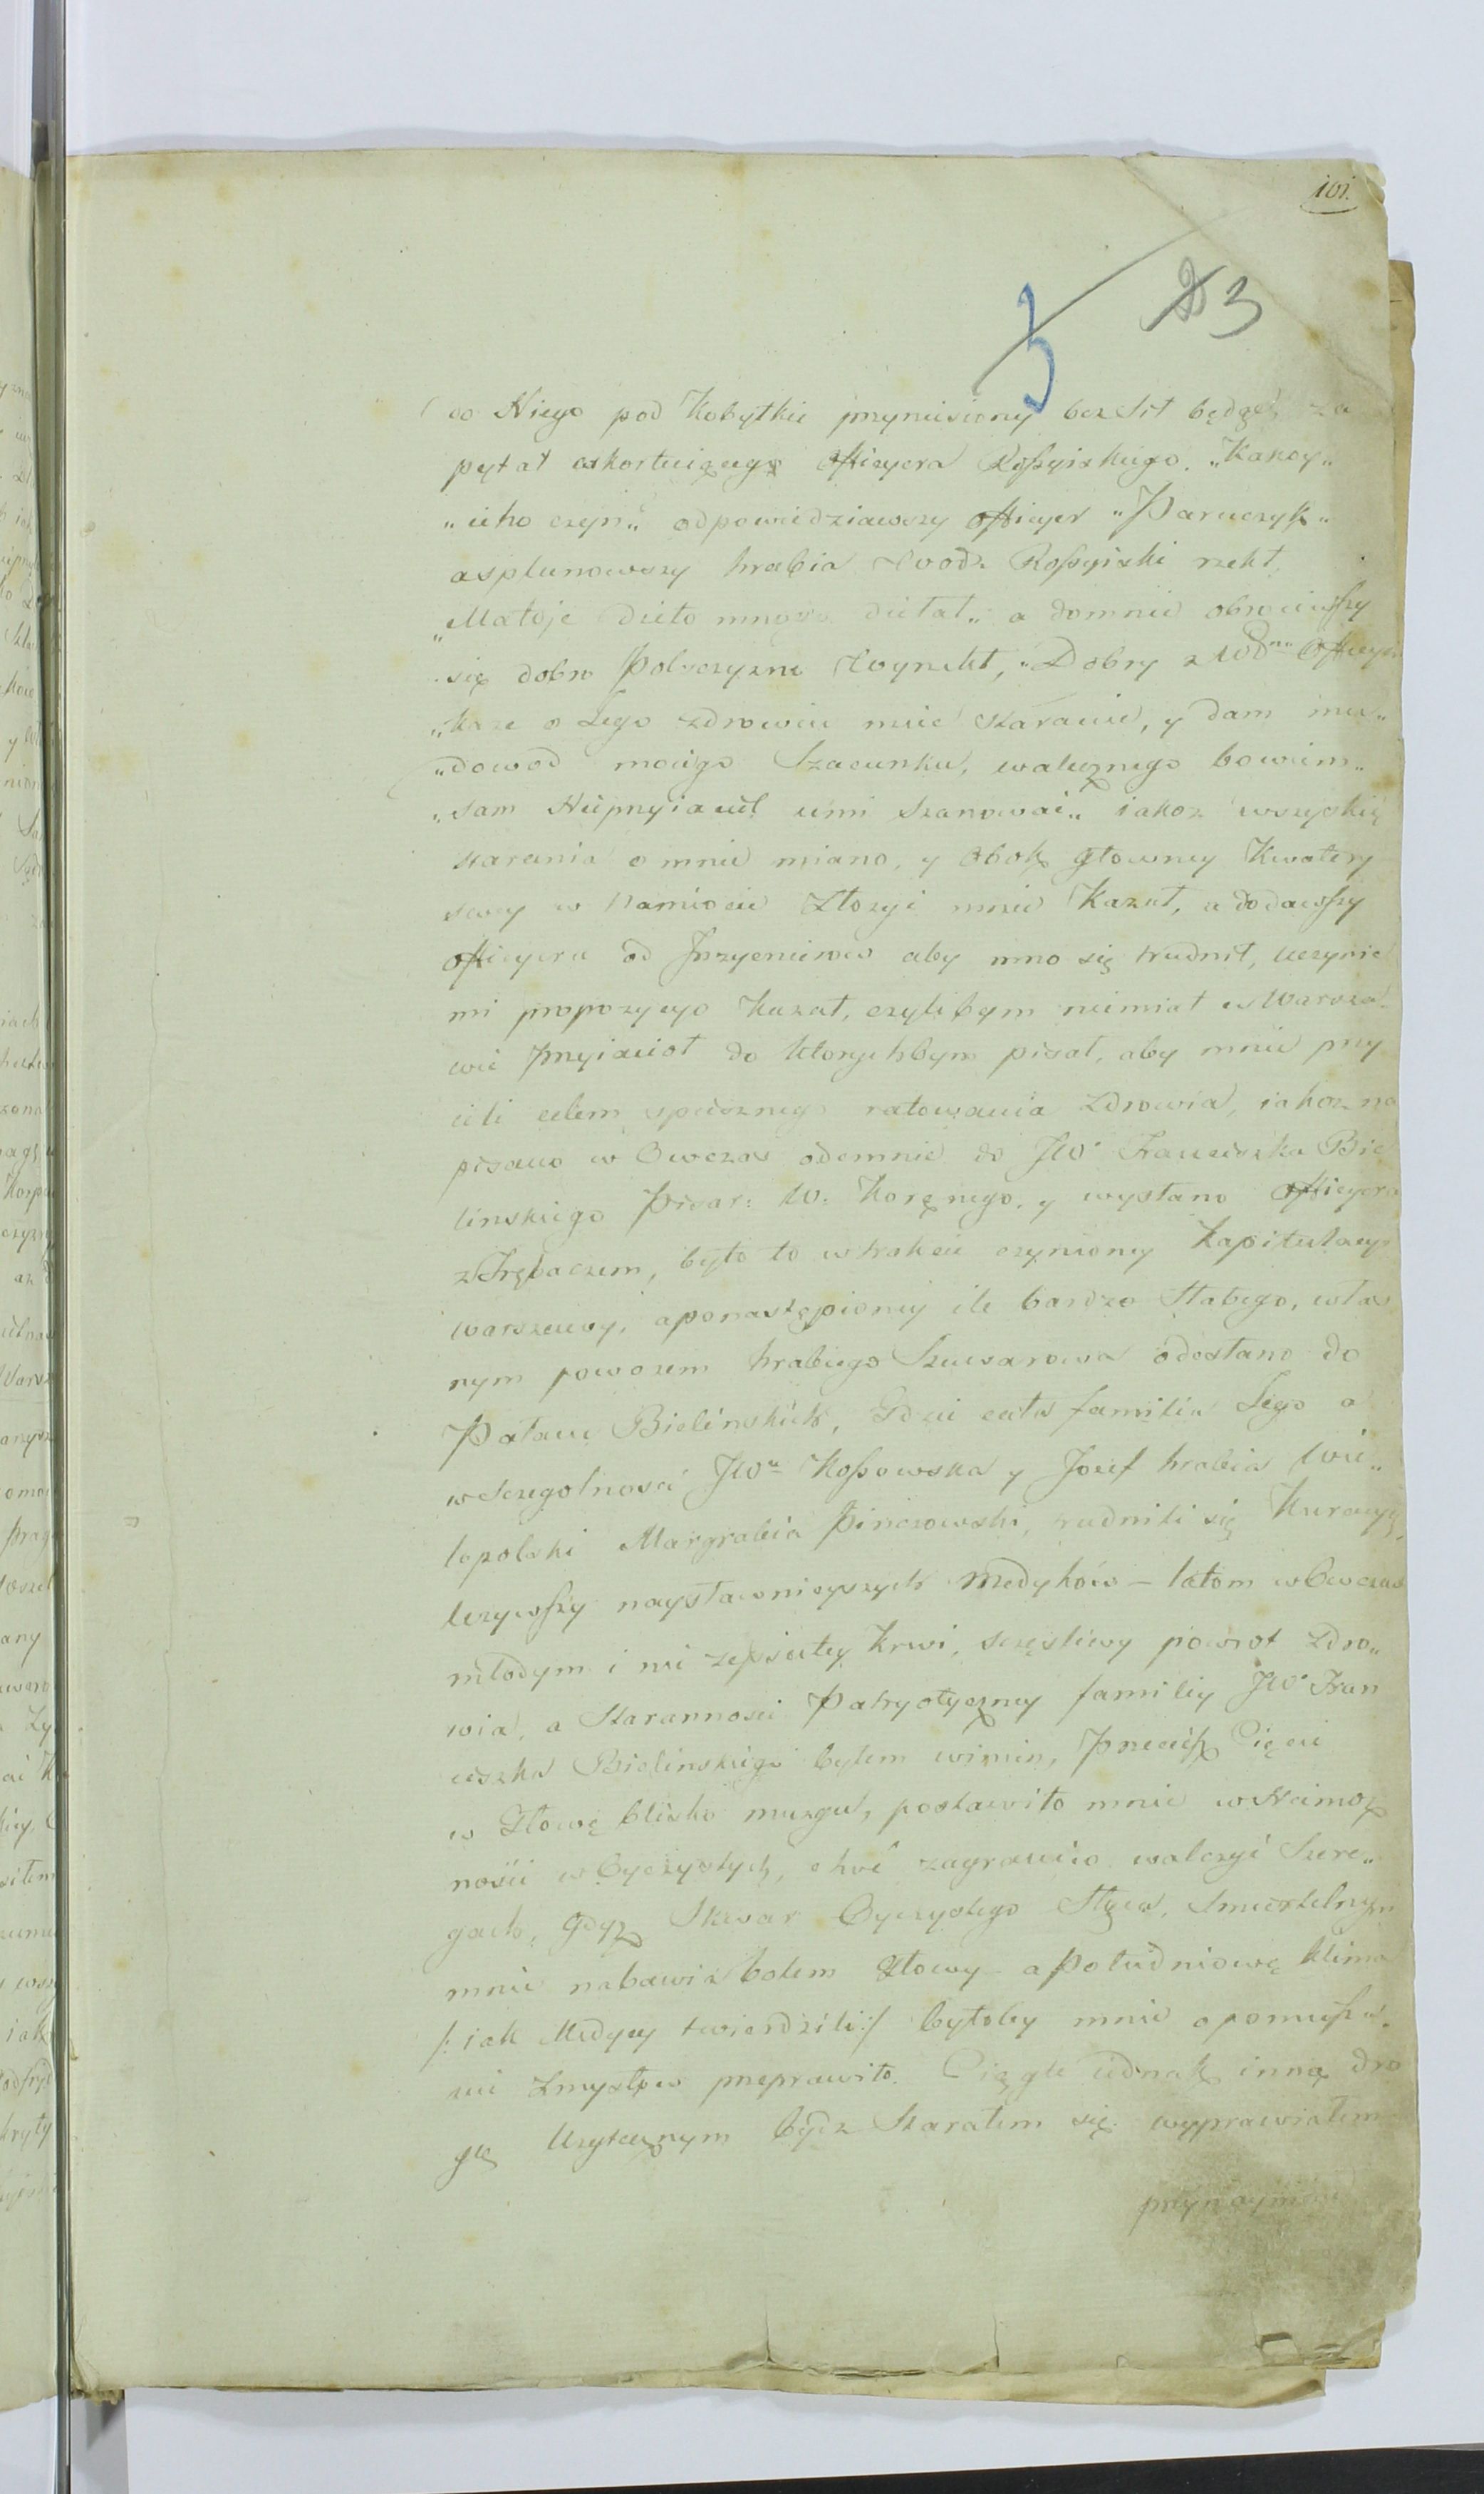 101.
3 23
do Niego pod Kobyłkie przyniesiony bez sił będąc, za
pytał eskortuiącego officyera Rossyiskiego. „Kakoy„
„ieho czyn„ odpowiedziawszy officyer „Paruczyk„
a splunowszy hrabia Wodz Rossyiski rzekł.
„Małoje dieło mnogo diełał„ a domnie obrociwszy
się dobro Polsczyzno wyrzekł, „Dobry z WPna Officyer
„każe o Jego zdrowiu mieć staranie, y dam mu„
„dowod moiego Szacunku, walecznego bowiem„
„sam Nieprzyiaciel umi Szanować„ iakoż wszyskie
starania o mnie miano, y obok głowney Kwatery
swey w Namiocie Złożyć mnie Kazał, a dodawszy
officyera od Inzyenierow aby mno się trudnił, uczynić
mi propozycyo Kazał, czylibym niemiał w Warsza
wie Przyiacioł do ktorychbym pisał, aby mnie przy
ieli celem spiesznego ratowania Zdrowia, iakoz na
pisano w Owczas odemnie do JW. Franciszka Bie
linskiego Pisar: W: Korąnego, y wysłano officyera
z Trębaczem, było to w trakcie czynioney Kapitulacyi
Warszawy, a ponastępioney ile bardzo Słabego, włas
nym powozem hrabiego Szuwarowa odesłano do
Pałacu Bielinskich, Gdzie cała familia Jego a
w Szczegolnosci JWa Kossowska y Jozef hrabia Wie„
lopolski Margrabia Pinczowski, trudnili się Kuracyą,
Używszy naysławnieyszych Medyków – latom w Owczas
młodym i nie zepsutey krwi, szczęśliwy powrot Zdro„
wia, a Staranności Patryotyczney familiy JW. Fran
ciszka Bielinskiego byłem winien, Przecież Cięcie
w Głowę blisko muzgu, postawiło mnie w Niemoż
ności w Oyczystych, choć zagranico walczyć Szere„
gach, gdyż Skwar Oyczystego Słąca, Smiertelnym
mnie nabawia bolem Głowy – a Południowe klima
/: iak Medycy twierdzili :/ byłoby mnie o pomiesza
nie Zmysłow przeprawiło. Ciągle iednak inną dro
gą Użytecznym bydz Starałem się. wyprawiałem
przynaymniey